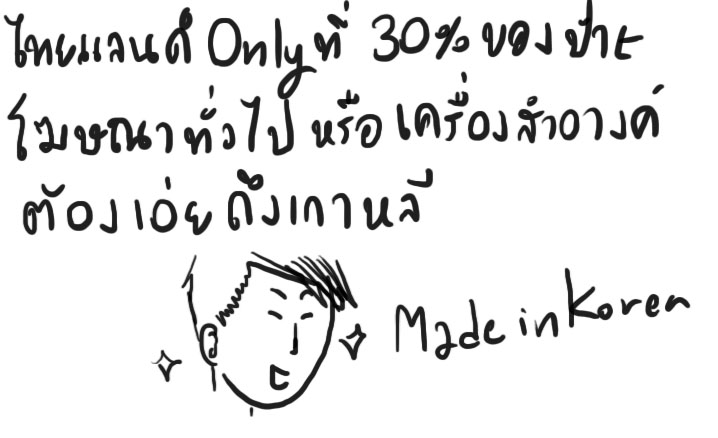 ไทยแลนด์ Only ที่ 30% ของป้าย
โฆษณาทั่วไป หรือ เครื่องสำอางค์
ต้องเอ่ย ถึงเกาหลี
Made in Korea